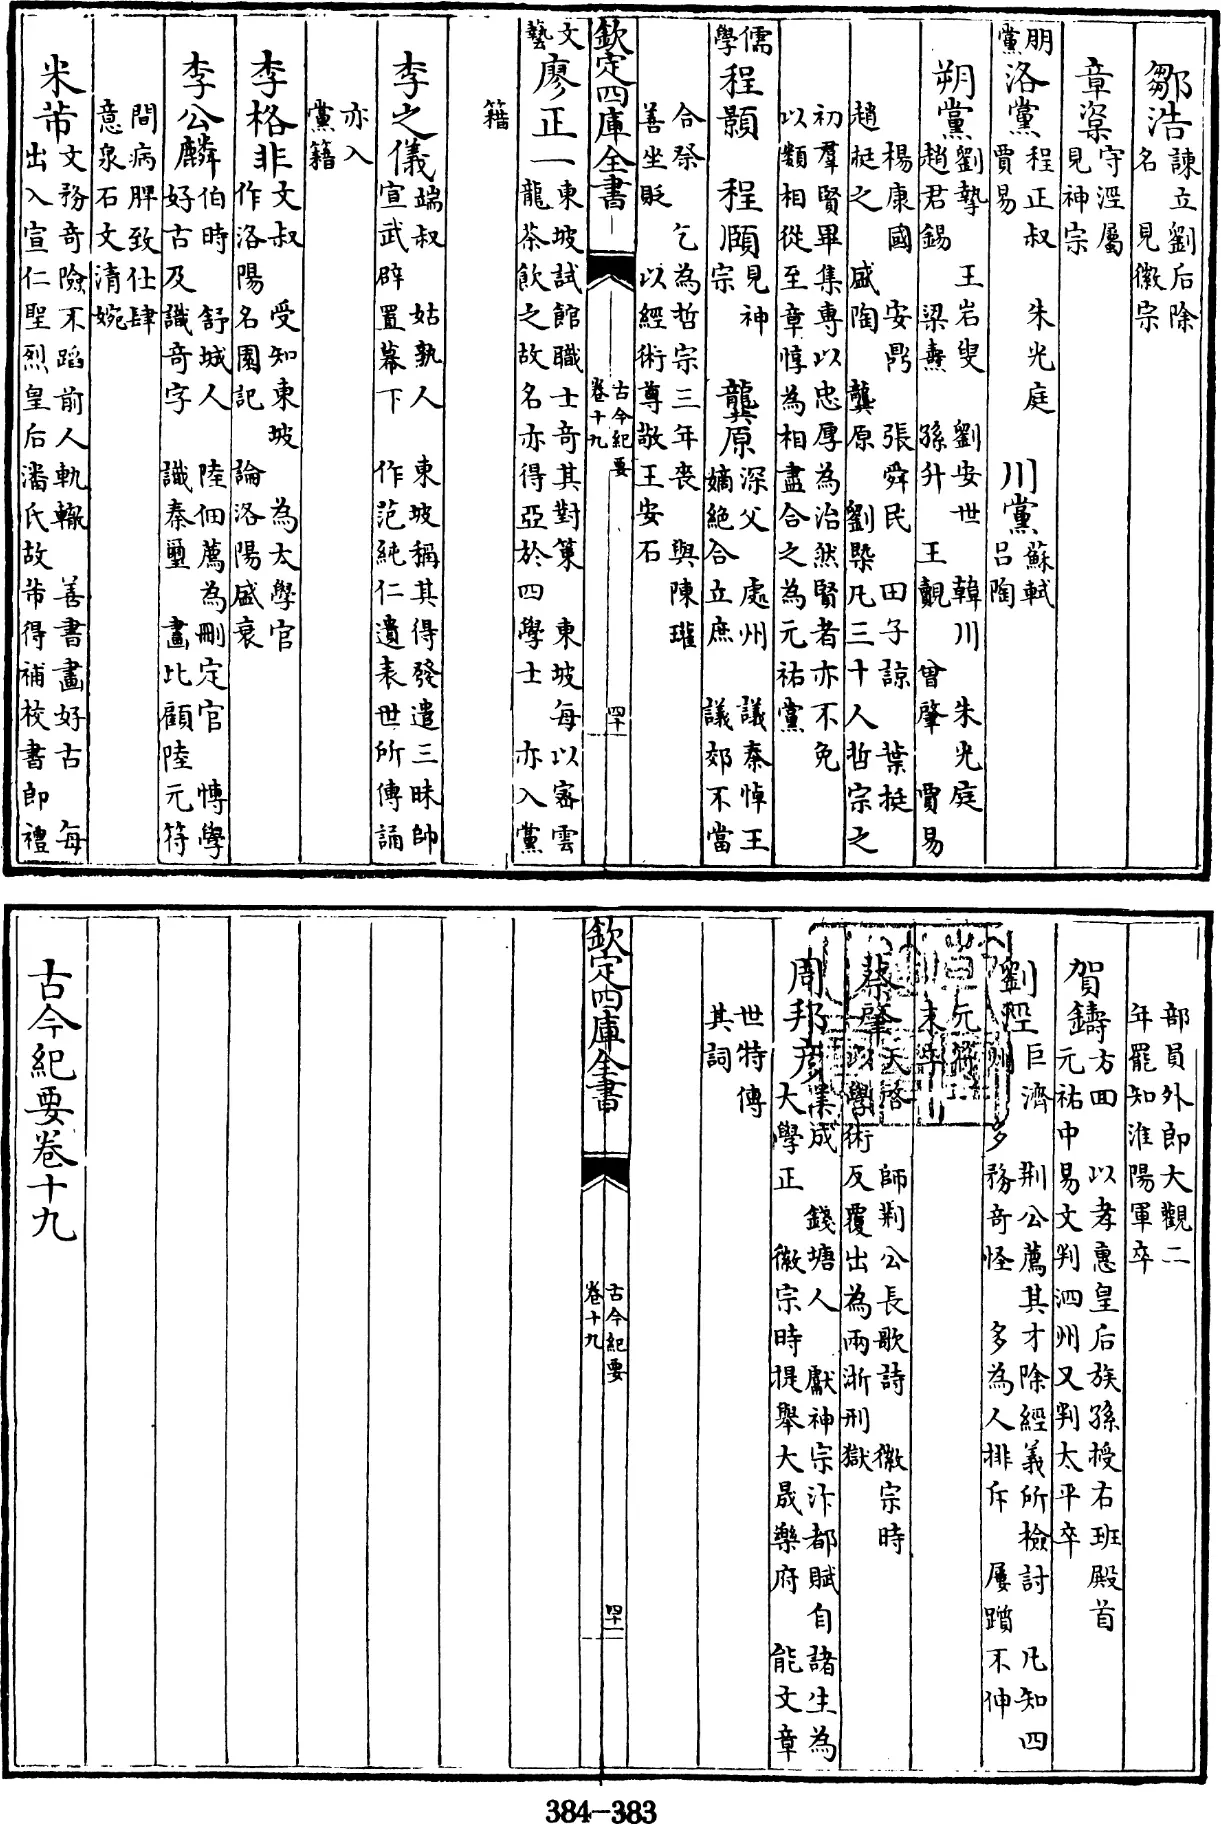 鄒浩諫立劉后除
名　見徽宗
章楶守涇屬
見神宗
朋黨洛黨程正叔　朱光庭
賈易
川黨蘇軾
呂陶
朔黨劉摯　王岩叟　劉安世　韓川　朱光庭
趙君錫　梁燾　孫升　王覿　曾肇　賈易
楊康國　安鼎　張舜民　田子諒　葉挺
趙挺之　盛陶　龔原　劉槩凡三十人哲宗之
初羣賢畢集專以忠厚為治然賢者亦不免
以類相從至章惇為相盡合之為元祐黨
儒學程顥　程頤見神
宗
龔原深父　處州　議秦悼王
嫡絶合立庶　議郊不當
合祭　乞為哲宗三年喪　與陳瓘
善坐貶　以經術尊敬王安石
欽定四庫全書
古今紀要
卷十九
四十
文藝廖正一東坡試館職士奇其對策　東坡每以密雲
龍茶飲之故名亦得亞於四學士　亦入黨
籍
李之儀端叔　姑孰人　東坡稱其得發遣三昧帥
宣武辟置幕下　作范純仁遺表世所傳誦
亦入
黨籍
李格非文叔　受知東坡　為太學官
作洛陽名園記　論洛陽盛衰
李公麟伯時　舒城人　陸佃薦為刪定官　博學
好古及識奇字　識秦璽　畫比顧陸元符
間病脾致仕肆
意泉石文清婉
米芾文務奇險不蹈前人軌轍　善書畫好古　每
出入宣仁聖烈皇后潘氏故芾得補校書郎禮
部員外郎大觀二
年罷知淮陽軍卒
賀鑄方回　以孝惠皇后族孫授右班殿首
元祐中易文判泗州又判太平卒
劉涇巨濟　荆公薦其才除經義所檢討　凡知四
州　多務奇怪　多為人排斥　屢躓不伸
元符
末卒
蔡肇天啓　師荆公長歌詩　徽宗時
以學術反覆出為兩浙刑獄
周邦彦業成　錢塘人　獻神宗汴都賦自諸生為
大學正　徽宗時提舉大晟樂府　能文章
世特傳
其詞
欽定四庫全書
古今紀要
卷十九
四十一
古今紀要卷十九
384-383